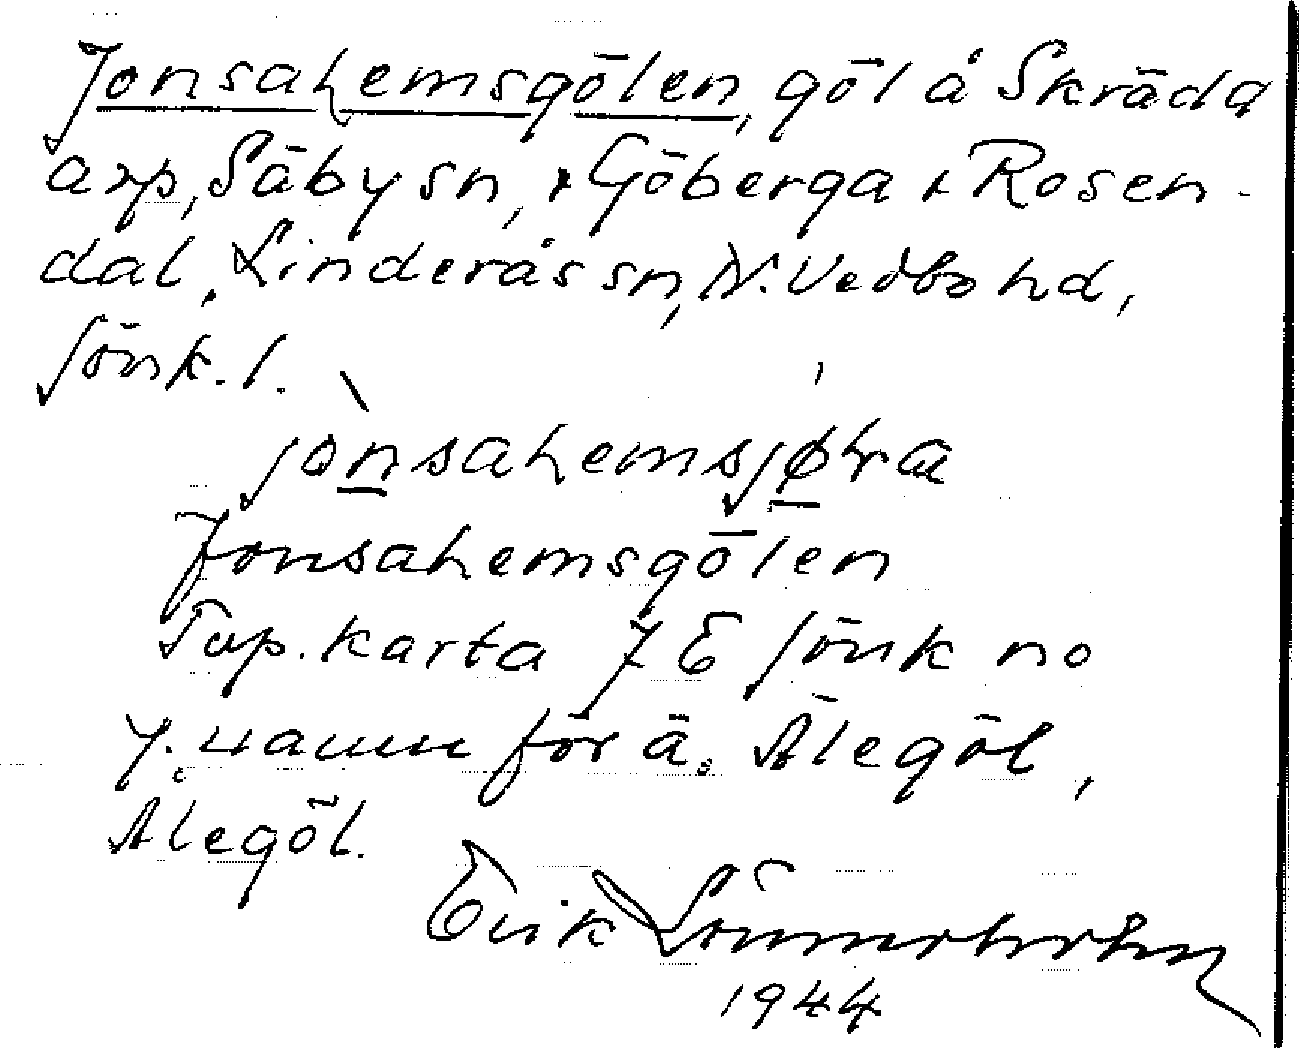 Jonsahemsgölen, göl å Skräda
arp, Säby sn, x Göberga x Rosen-
dal, Linderås sn, N. Vedbo hd,
Jönk. l.
jònsahemsjøḷra
Jonsahemsgölen
Top. karta 7 E Jönk no
y. namn för ä. Älegöl,
Älegöl.
Erik
1944